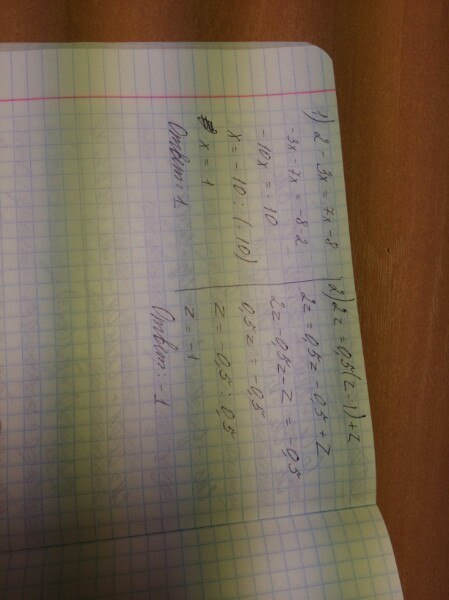 1) 2 - 3x = 7x - 8
-3x - 7x = -8 - 2
-10x = -10
x = -10 : (-10)
x = 1
Ответ: 1
2) 2z = 0,5(z - 1) + z
2z = 0,5z - 0,5 + z
2z - 0,5z - z = -0,5
0,5z = -0,5
z = -0,5 : 0,5
z = -1
Ответ: -1